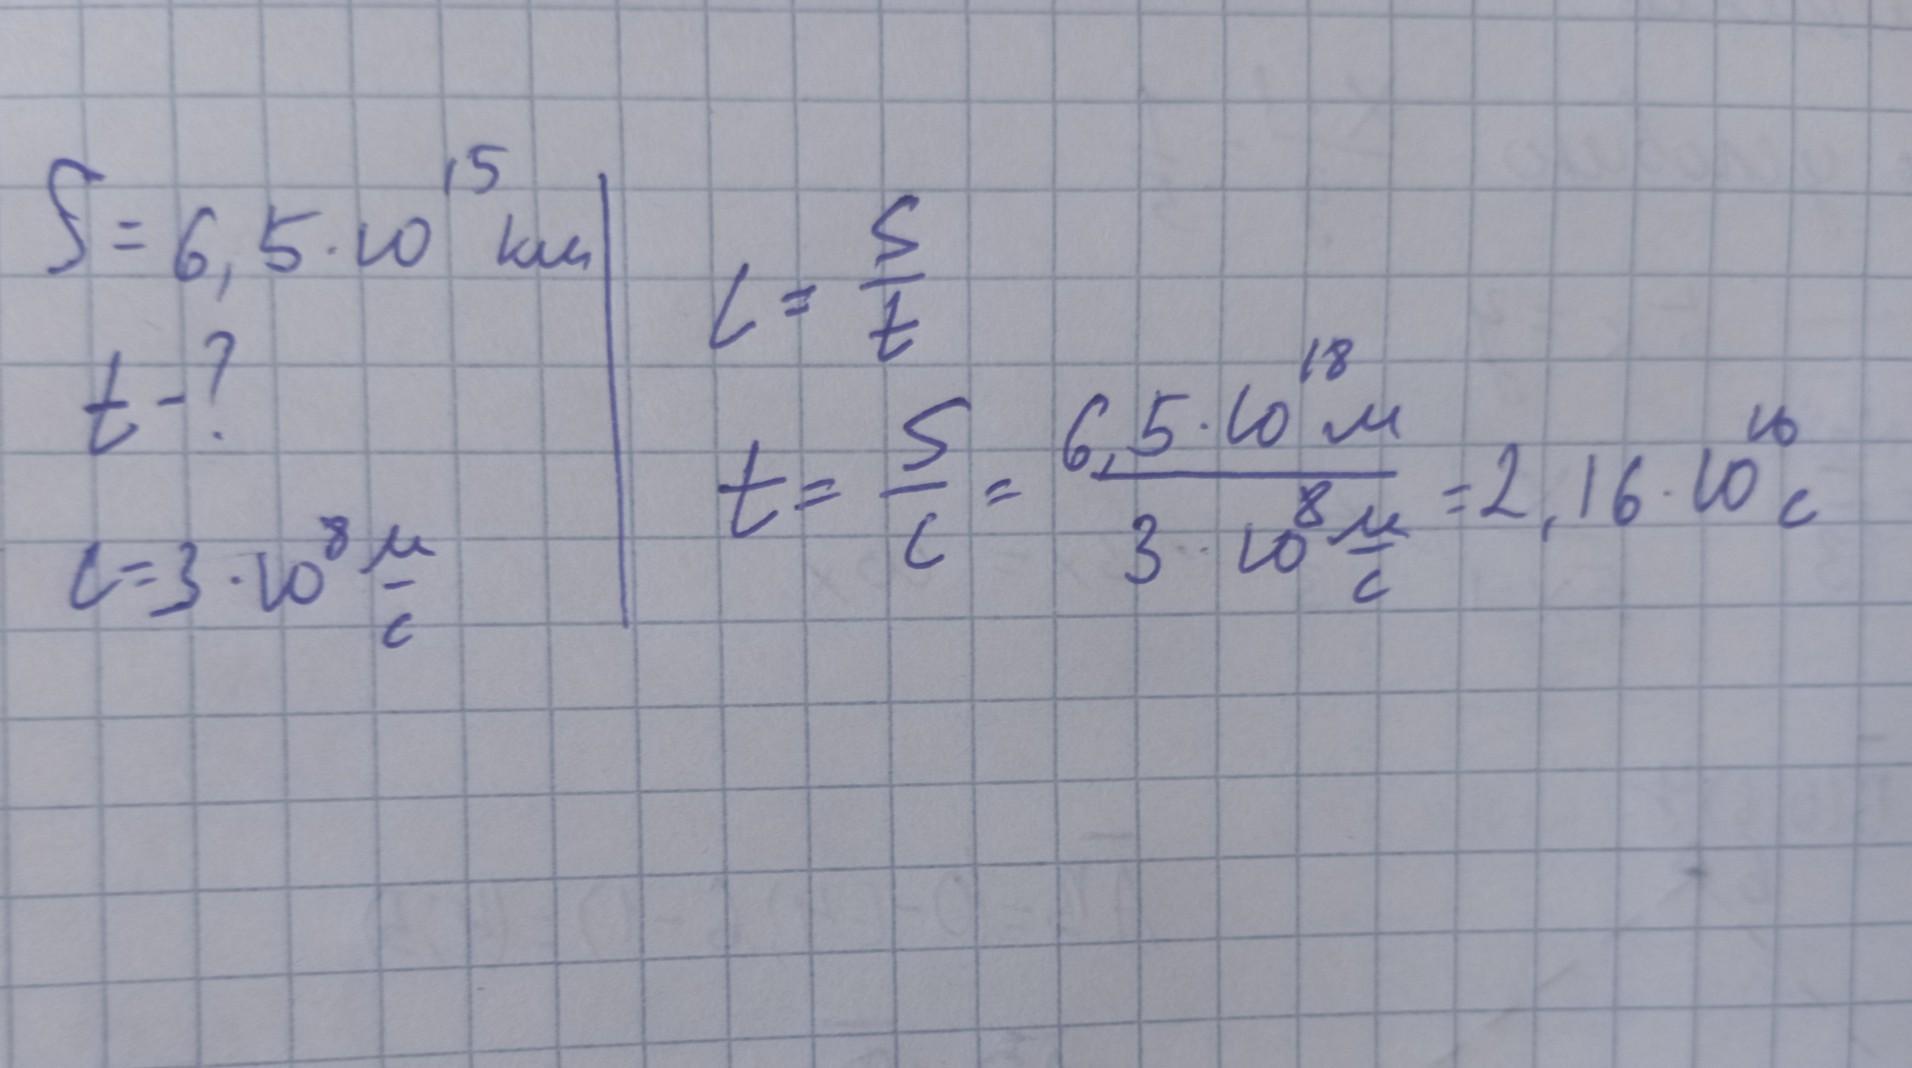 S = 6,5 · 10¹⁵ км
t - ?
c = 3 · 10⁸ м/с
c = S/t
t = S/c = 6,5 · 10¹⁸ м / 3 · 10⁸ м/с = 2,16 · 10¹⁰ с